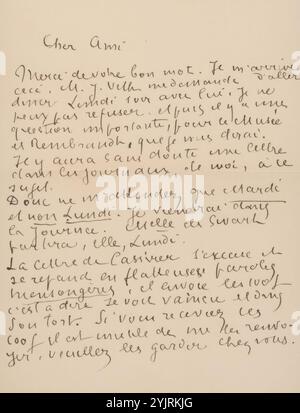 Cher Ami
Merci de votre bon mot. Je m'arrive
ceci. M. J. Veth me demande d'aller
diner Lundi soir avec lui, je ne
peux pas refuser. Et puis il y a une
question importante, pour le Musée
et Rembrandt, que je vous dirai.
Il y aura sans doute une lettre
dans les journaux, de moi, à ce
sujet.
Donc ne m'attendez, que Mardi
et non Lundi. Je viendrai dans
la journée. Melle de Swarth
partira, elle, Lundi.
La lettre de Cassirer s'excuse et
se repand en flatteuses paroles
mensongères; il envoie les 1000f
c'est à dire se voit vaincu et dans
son tort. Si vous recevez ces
1000f il est inutile de me les renvo-
yer, veuillez les garder chez vous.
alamy
Image ID: 2YJRKJG
www.alamy.com